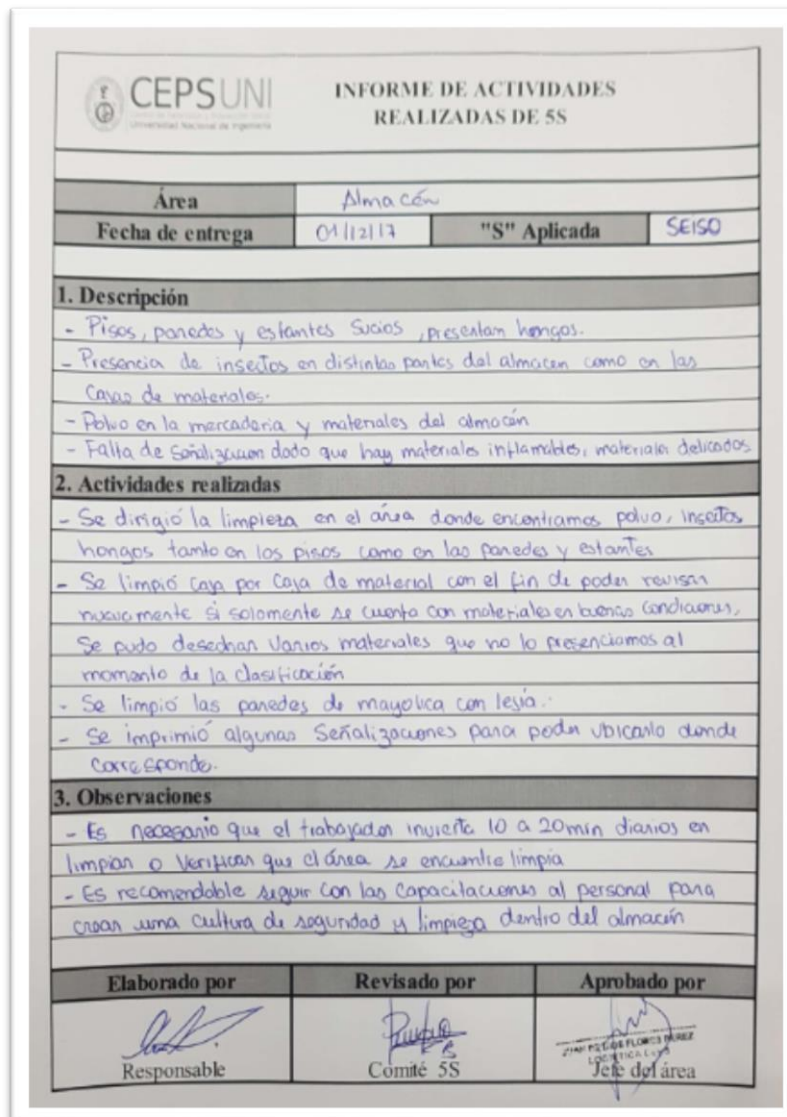 CEPSUNI
Universidad Nacional de Ingeniería
INFORME DE ACTIVIDADES
REALIZADAS DE 5S
Área Almacén
Fecha de entrega 01/12/17 "S" Aplicada SEISO
1. Descripción
- Pisos, paredes y estantes Sucios, presentan hongos.
- Presencia de insectos en distintas partes del almacen como en las
Cajas de materiales.
- Polvo en la mercadería y materiales del almacén
- Falta de Señalización dado que hay materiales inflamables, materiales delicados
2. Actividades realizadas
- Se dirigió la limpieza en el área donde encontramos polvo, insectos
hongos tanto en los pisos como en las paredes y estantes
- Se limpió caja por Caja de material con el fin de poder revisar
nuevamente si solamente se cuenta con materiales en buenas condiciones,
Se pudo desechar Varios materiales que no lo presenciamos al
momento de la clasificación
- Se limpió las paredes de mayolica con lesía.
- Se imprimió algunas Señalizaciones para poder ubicarlo donde
corresponde.
3. Observaciones
- Es necesario que el trabajador invierta 10 a 20min diarios en
limpiar o Verificar que el área se encuentre limpia
- Es recomendable seguir con las Capacitaciones al personal para
crear una cultura de seguridad y limpieza dentro del almacén
Elaborado por Revisado por Aprobado por
FLORES PEREZ
LOGISTICA
Responsable Comité 5S Jefe del área